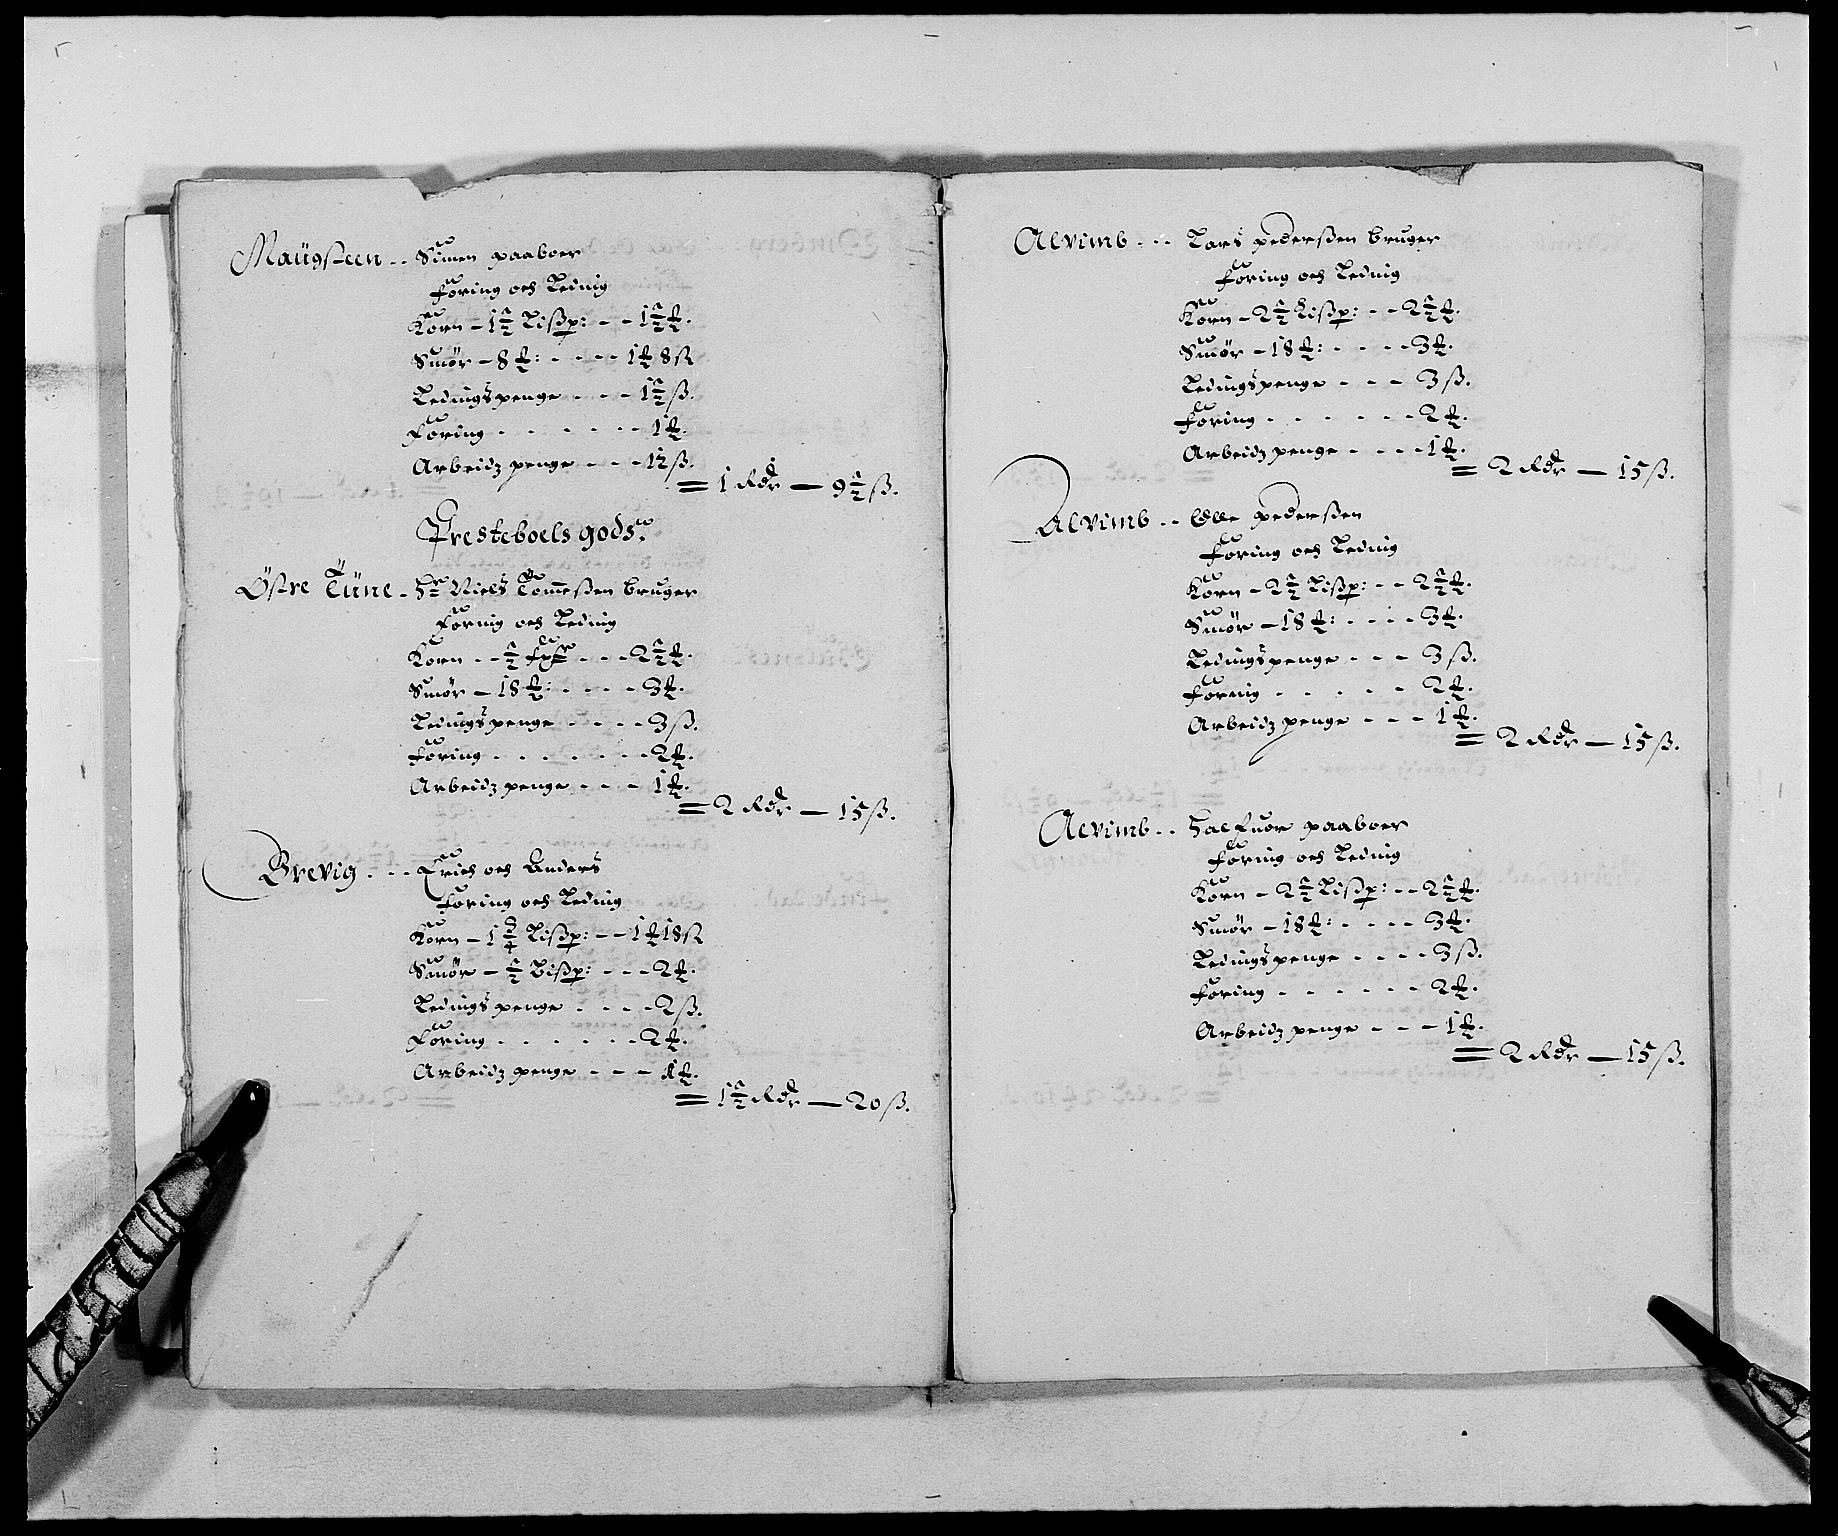 Maügsteen -- Simen paaboer
Foring och Leding
Korn - 1½ Lißp: - - 1½ ℔.
Smør - 8 ℔: - - - - 1 ℔ 8 ß
Ledings penge - - - 1½ ß.
Foring - - - - - - 1 ℔.
Arbeidz penge - - - 12 ß.
= 1 Rdr — 9½ ß.
Presteboels gods.
Østre Tüne - Hr Niels Tommeßen bruger
Foring och Leding
Korn - - ½ - - - 2½ ℔.
Smør - 18 ℔: - - - - 3 ℔.
Ledings penge - - - - 3 ß.
Foring - - - - - - 2 ℔.
Arbeidz penge - - - 1 ℔.
= 2 Rdr — 15 ß.
Brevig - - - Erich och Anders
Foring och Leding
Korn - 1¾ Lißp: - - 1 ℔ 18 ß
Smør - ½ Lißp: - - - 2 ℔.
Ledings penge - - - - 2 ß.
Foring - - - - - - 2 ℔.
Arbeidz penge - - - 1 ℔.
= 1½ Rdr — 20 ß.
Alvimb - - - Lars pederßen bruger
Foring och Leding
Korn - 2½ Lißp: - - 2½ ℔.
Smør - 18 ℔: - - - - 3 ℔.
Ledings penge - - - 3 ß.
Foring - - - - - - 2 ℔.
Arbeidz penge - - - - 1 ℔.
= 2 Rdr — 15 ß.
Alvimb - - Olle pederßen
Foring och Leding
Korn - 2½ Lißp: - - 2½ ℔.
Smør - 18 ℔: - - - - 3 ℔.
Ledings penge - - - 3 ß.
Foring - - - - - 2 ℔.
Arbeidz penge - - - 1 ℔.
= 2 Rdr — 15 ß.
Alvimb - - Halfuor paaboer
Foring och Leding
Korn - 2½ Lißp: - - 2½ ℔.
Smør - 18 ℔: - - - - 3 ℔.
Ledings penge - - - - 3 ß.
Foring - - - - - - 2 ℔.
Arbeidz penge - - - 1 ℔.
= 2 Rdr — 15 ß.